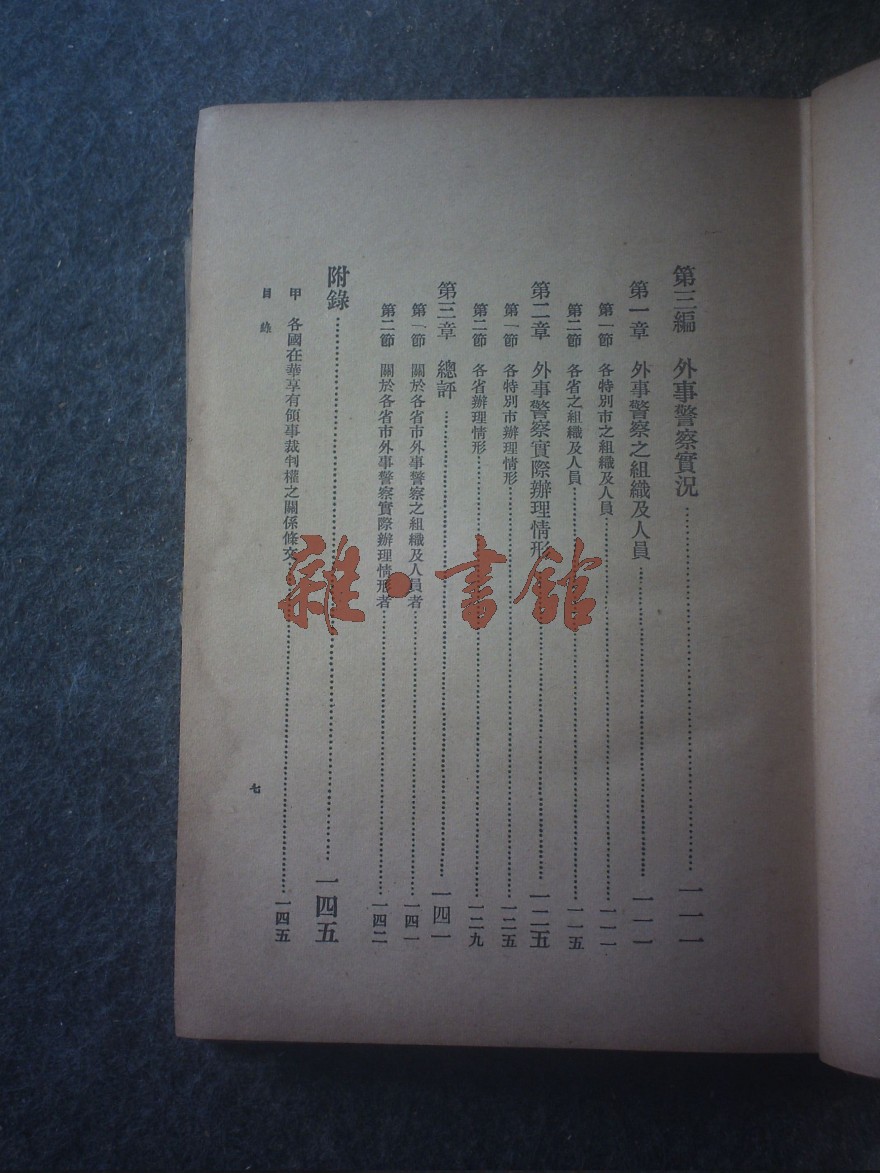 第三編 外事警察實況……一一一
第一章 外事警察之組織及人員……一一一
第一節 各特別市之組織及人員……一一一
第二節 各省之組織及人員……一一五
第二章 外事警察實際辦理情形……一二五
第一節 各特別市辦理情形……一二五
第二節 各省辦理情形……一二九
第三章 總評……一四一
第一節 關於各省市外事警察之組織及人員者……一四一
第二節 關於各省市外事警察實際辦理情形者……一四二
附錄……一四五
甲 各國在華享有領事裁判權之關係條文……一四五
目錄
七
雜·書館